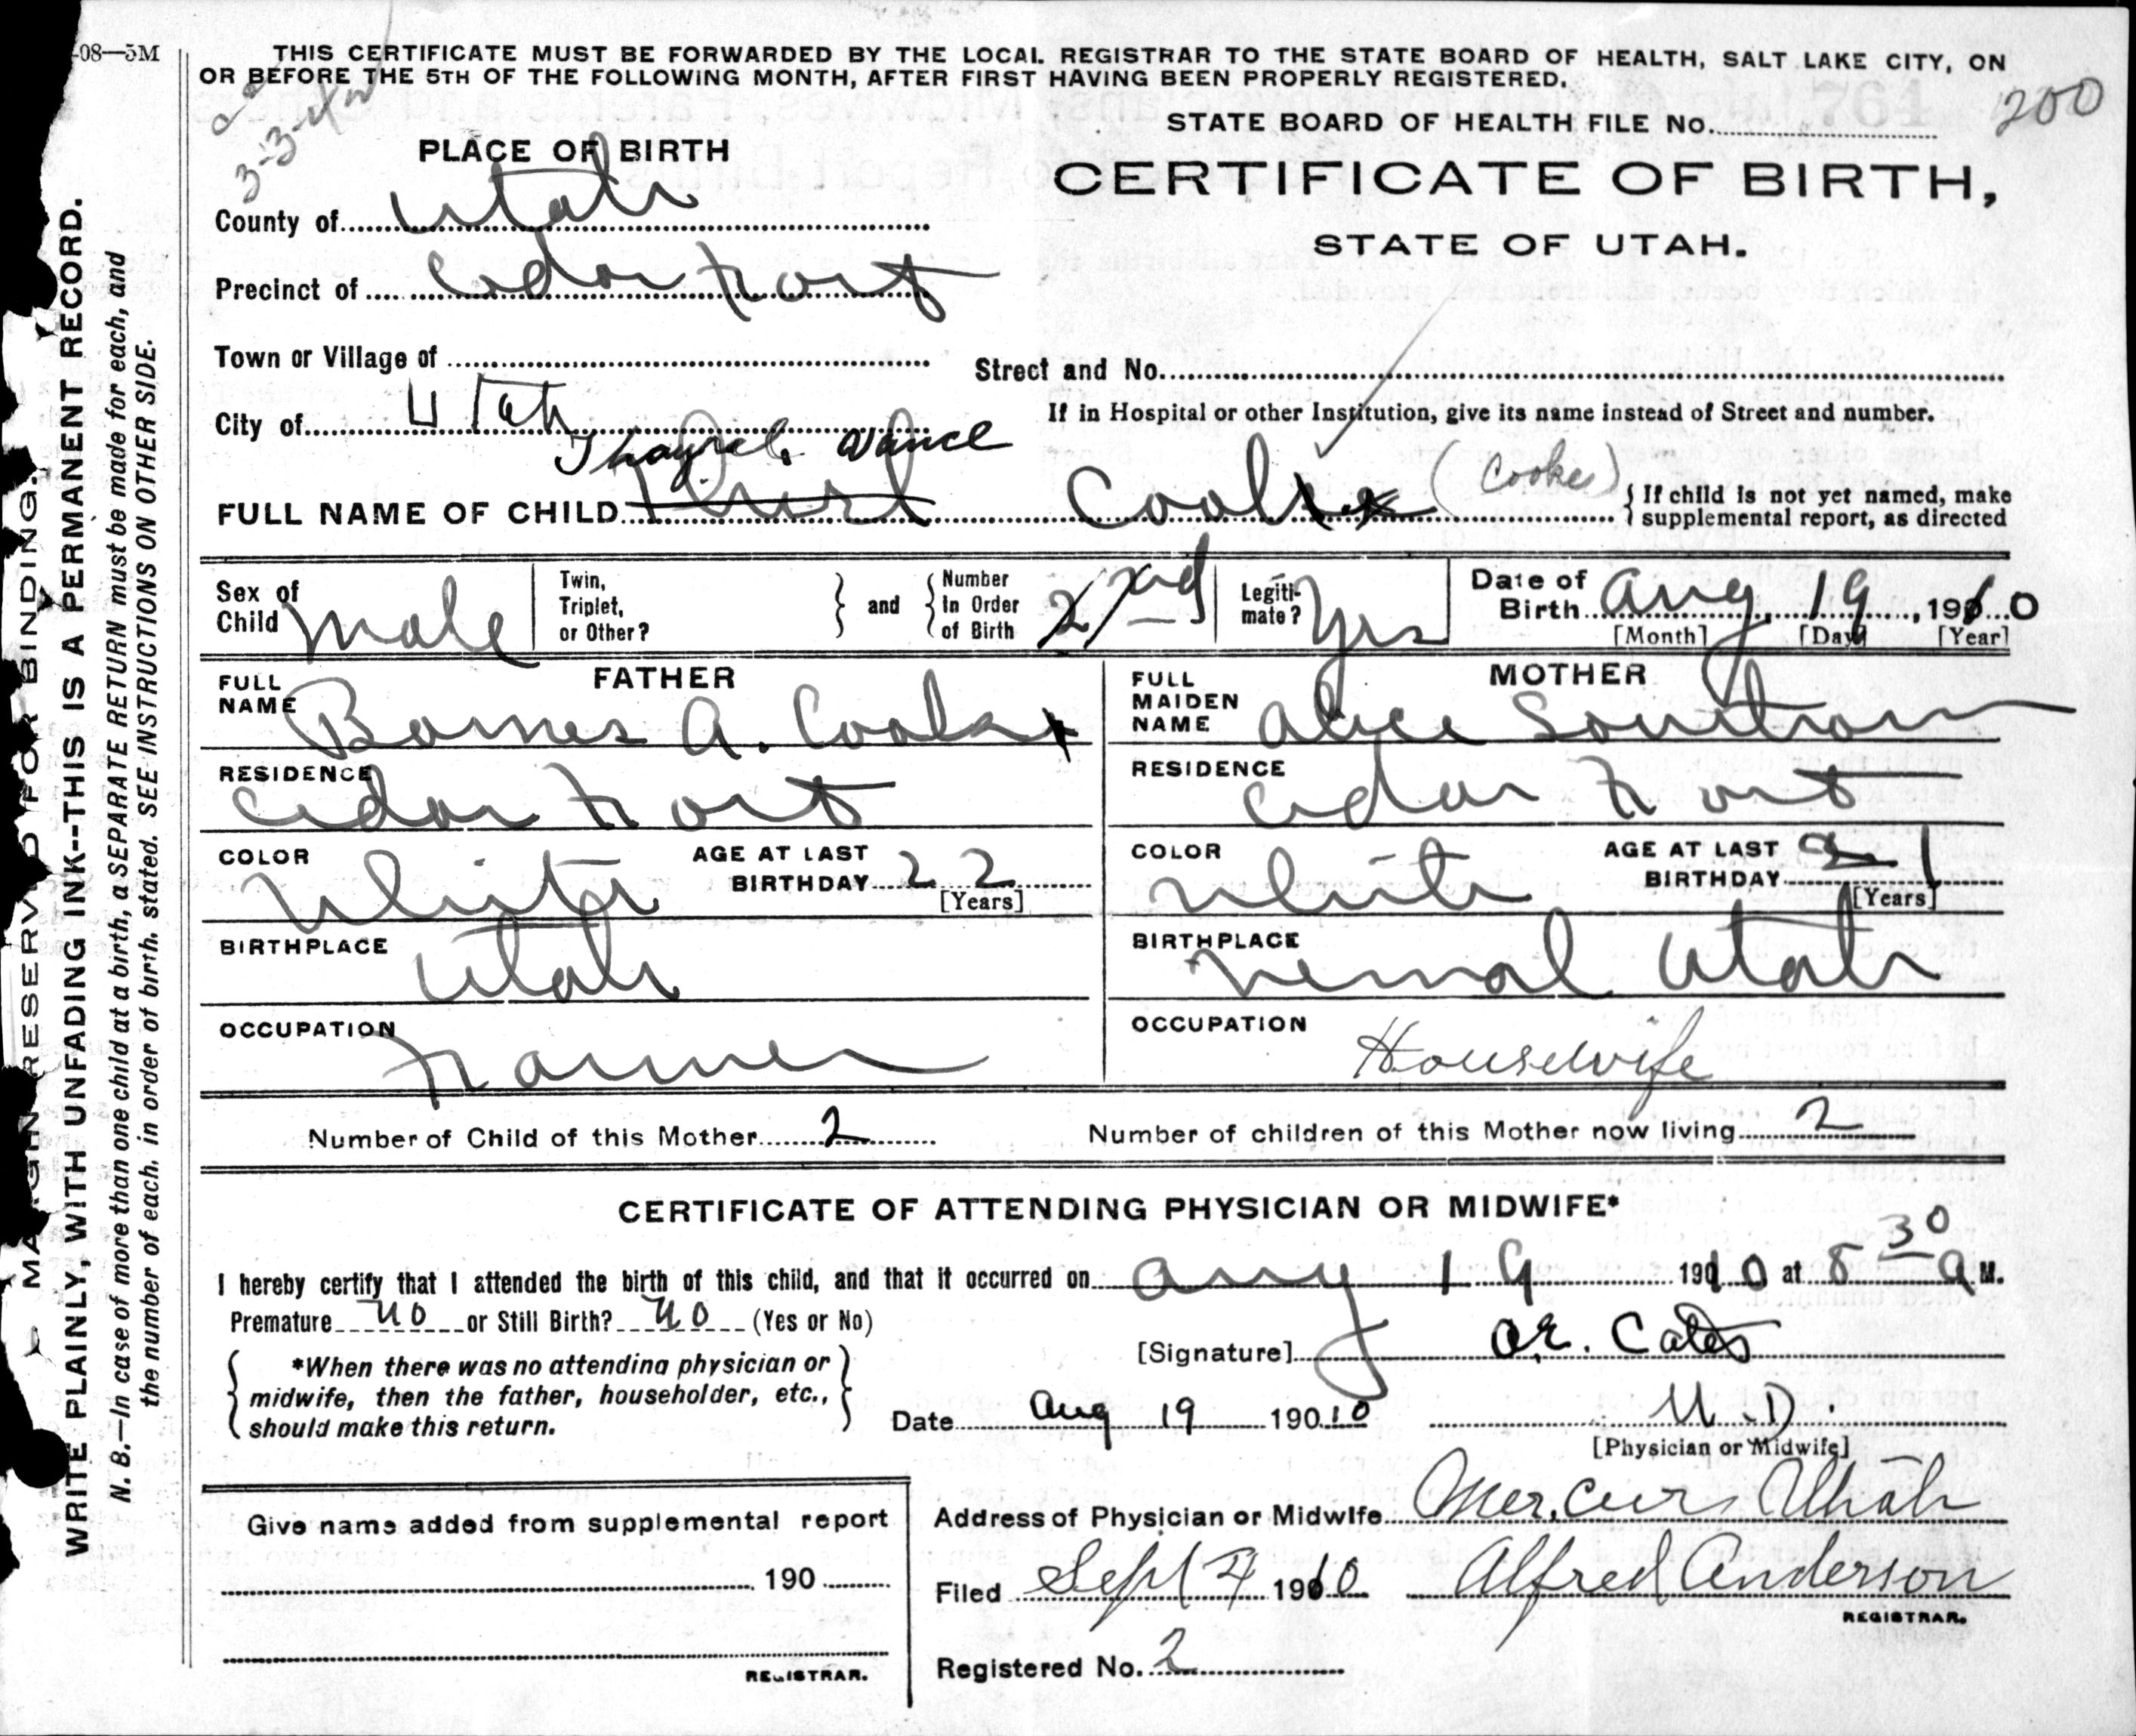 -08—5M
THIS CERTIFICATE MUST BE FORWARDED BY THE LOCAL REGISTRAR TO THE STATE BOARD OF HEALTH, SALT LAKE CITY, ON
OR BEFORE THE 5TH OF THE FOLLOWING MONTH, AFTER FIRST HAVING BEEN PROPERLY REGISTERED.
200
STATE BOARD OF HEALTH FILE No.
CERTIFICATE OF BIRTH,
STATE OF UTAH.
PLACE OF BIRTH
County of Utah
Precinct of Cedar Fort
Town or Village of
Street and No.
City of Utah
If in Hospital or other Institution, give its name instead of Street and number.
Vance
FULL NAME OF CHILD Cook (Cookes)
If child is not yet named, make
supplemental report, as directed
Sex of Child male
Twin, Triplet, or Other?
and
Number in Order of Birth 2nd
Legitimate? Yes
Date of Birth Aug. 19, 1910
[Month] [Day] [Year]
FATHER
FULL NAME Barnes A. Cook
RESIDENCE Cedar Fort
COLOR White
AGE AT LAST BIRTHDAY 22
[Years]
BIRTHPLACE Utah
OCCUPATION Farmer
MOTHER
FULL MAIDEN NAME Alice
RESIDENCE Cedar Fort
COLOR White
AGE AT LAST BIRTHDAY 21
[Years]
BIRTHPLACE Vernal Utah
OCCUPATION Housewife
Number of Child of this Mother 2
Number of children of this Mother now living 2
CERTIFICATE OF ATTENDING PHYSICIAN OR MIDWIFE*
I hereby certify that I attended the birth of this child, and that it occurred on Aug 19 1910 at 8 30 a M.
Premature no or Still Birth? no (Yes or No)
*When there was no attending physician or
midwife, then the father, householder, etc.,
should make this return.
[Signature] Cates
Date Aug 19 190 10
M.D.
[Physician or Midwife]
Give name added from supplemental report
190
REGISTRAR.
Address of Physician or Midwife Mercur Utah
Filed Sept 4 1910 Alfred Anderson
REGISTRAR.
Registered No. 2
MARGIN RESERVED FOR BINDING.
WRITE PLAINLY, WITH UNFADING INK--THIS IS A PERMANENT RECORD.
N. B.—In case of more than one child at a birth, a SEPARATE RETURN must be made for each, and
the number of each, in order of birth, stated. SEE INSTRUCTIONS ON OTHER SIDE.